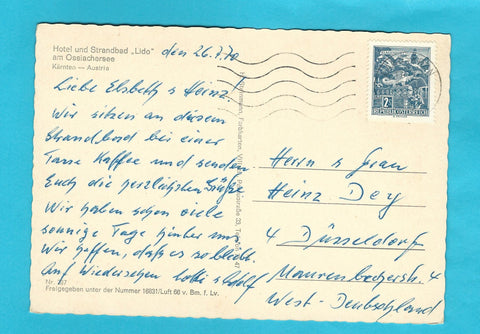 Hotel und Strandbad „Lido"
am Ossiachersee
Kärnten — Austria
den 26.7.70
Liebe Elsbeth u Heinz!
Wir sitzen an diesem
Strandbad bei einer
Tasse Kaffee und senden
Euch die herzlichsten Grüße
Wir haben schon viele
sonnige Tage hinter uns
Wir hoffen, daß es so bleibt.
Auf Wiedersehen Lotti u Adolf
Nr. 237
Freigegeben unter der Nummer 16831/Luft 66 v. Bm. f. Lv.
2
REPUBLIK ÖSTERREICH
Herrn u Frau
Heinz Dey
4 Düsseldorf
Maurenbrecherstr. 4
West-Deutschland